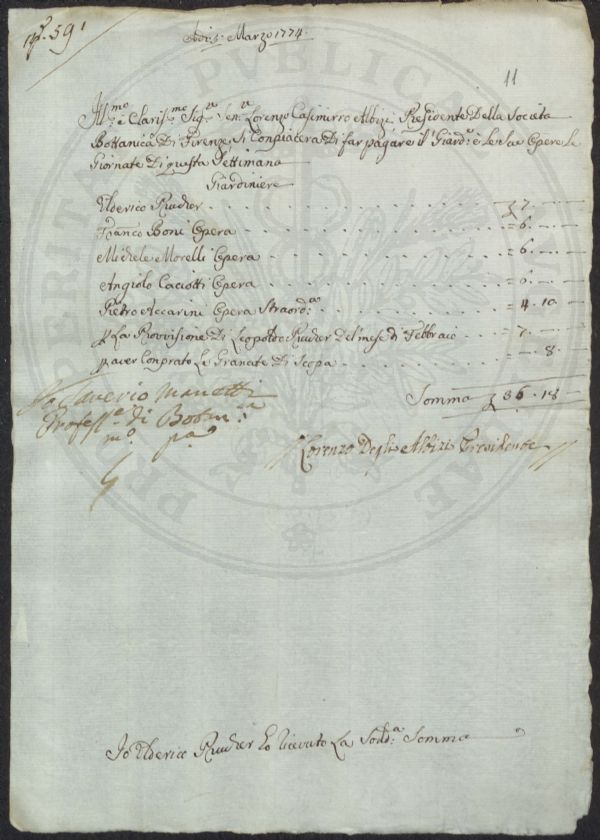 N.º 591
Adi 5. Marzo 1774.
11
Ill.mo e Clariss.mo Sig.r Sen.r Lorenzo Casimirro Albizi Presidente Della Societa
Bottanica Di Firenze, Si Conpiacera Di far pagare il Giard.e e Le Sue Opere Le
Giornate Di questa Settimana
Giardiniere
Ulderico Rucher . . . . . . . . . . £ 7. —
Franco Boni Opera . . . . . . . . . = 6. —
Michele Morelli Opera . . . . . . . = 6. —
Angiolo Caciotti Opera . . . . . . . = 6. —
Pietro Accarini Opera Straord.a . . . = 4. 10 —
p La Provisione Di Leopoldo Rucher Del mese di Febbraio . . = 7. —
p aver Conprato Le Granate Di Scopa . . . = — 8. —
Somma £ 36. 18 —
Io Saverio Manetti
Profess.e di Botan.ca
m.o p.a
Lorenzo Degli Albizi Presidente
Io Ulderico Rucher ho ricevuto La Sudd.a Somma
PROSPERITATI PUBLICAE